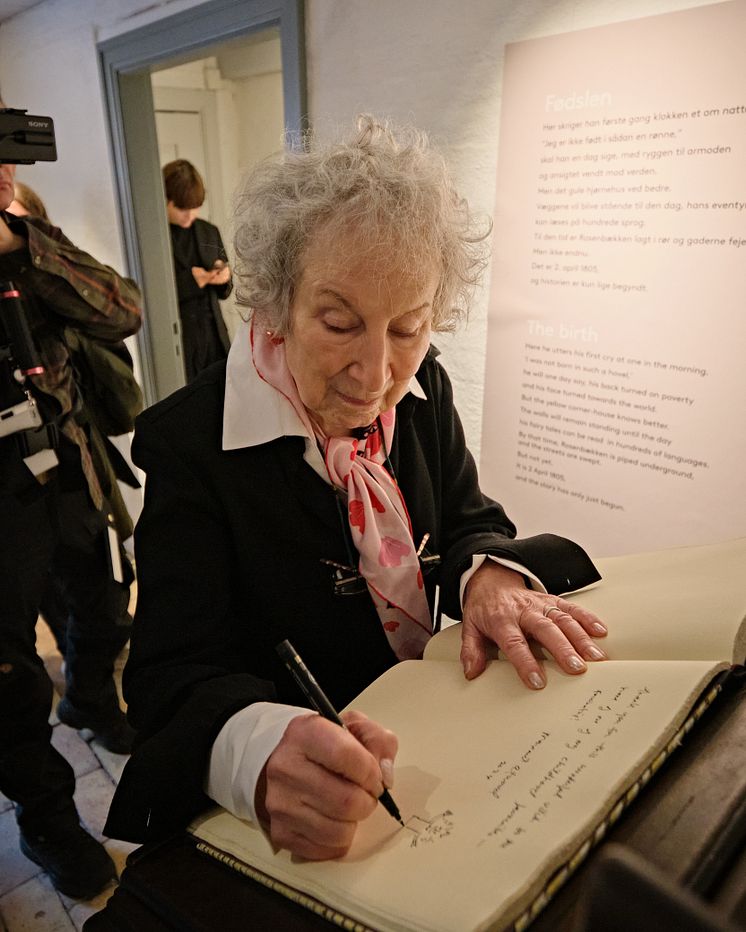 SONY
Fødslen
Her skriger han første gang klokken et om natte
"Jeg er ikke født i sådan en rønne,"
skal han en dag sige, med ryggen til armoden
og ansigtet vendt mod verden.
Men det gule hjørnehus ved bedre.
Væggene vil blive stående til den dag, hans eventyr
kan læses på hundrede sprog.
Til den tid er Rosenbækken lagt i rør og gaderne feje
Men ikke endnu.
Det er 2. april 1805,
og historien er kun lige begyndt.
The birth
Here he utters his first cry at one in the morning.
'I was not born in such a hovel,'
he will one day say, his back turned on poverty
and his face turned towards the world.
But the yellow corner-house knows better.
The walls will remain standing until the day
his fairy tales can be read in hundreds of languages.
By that time, Rosenbækken is piped underground,
and the streets are swept.
But not yet.
It is 2 April 1805,
and the story has only just begun.
Thank you for this wonderful visit to the
home of one of my childhood
favourites!
Margaret Atwood
2024